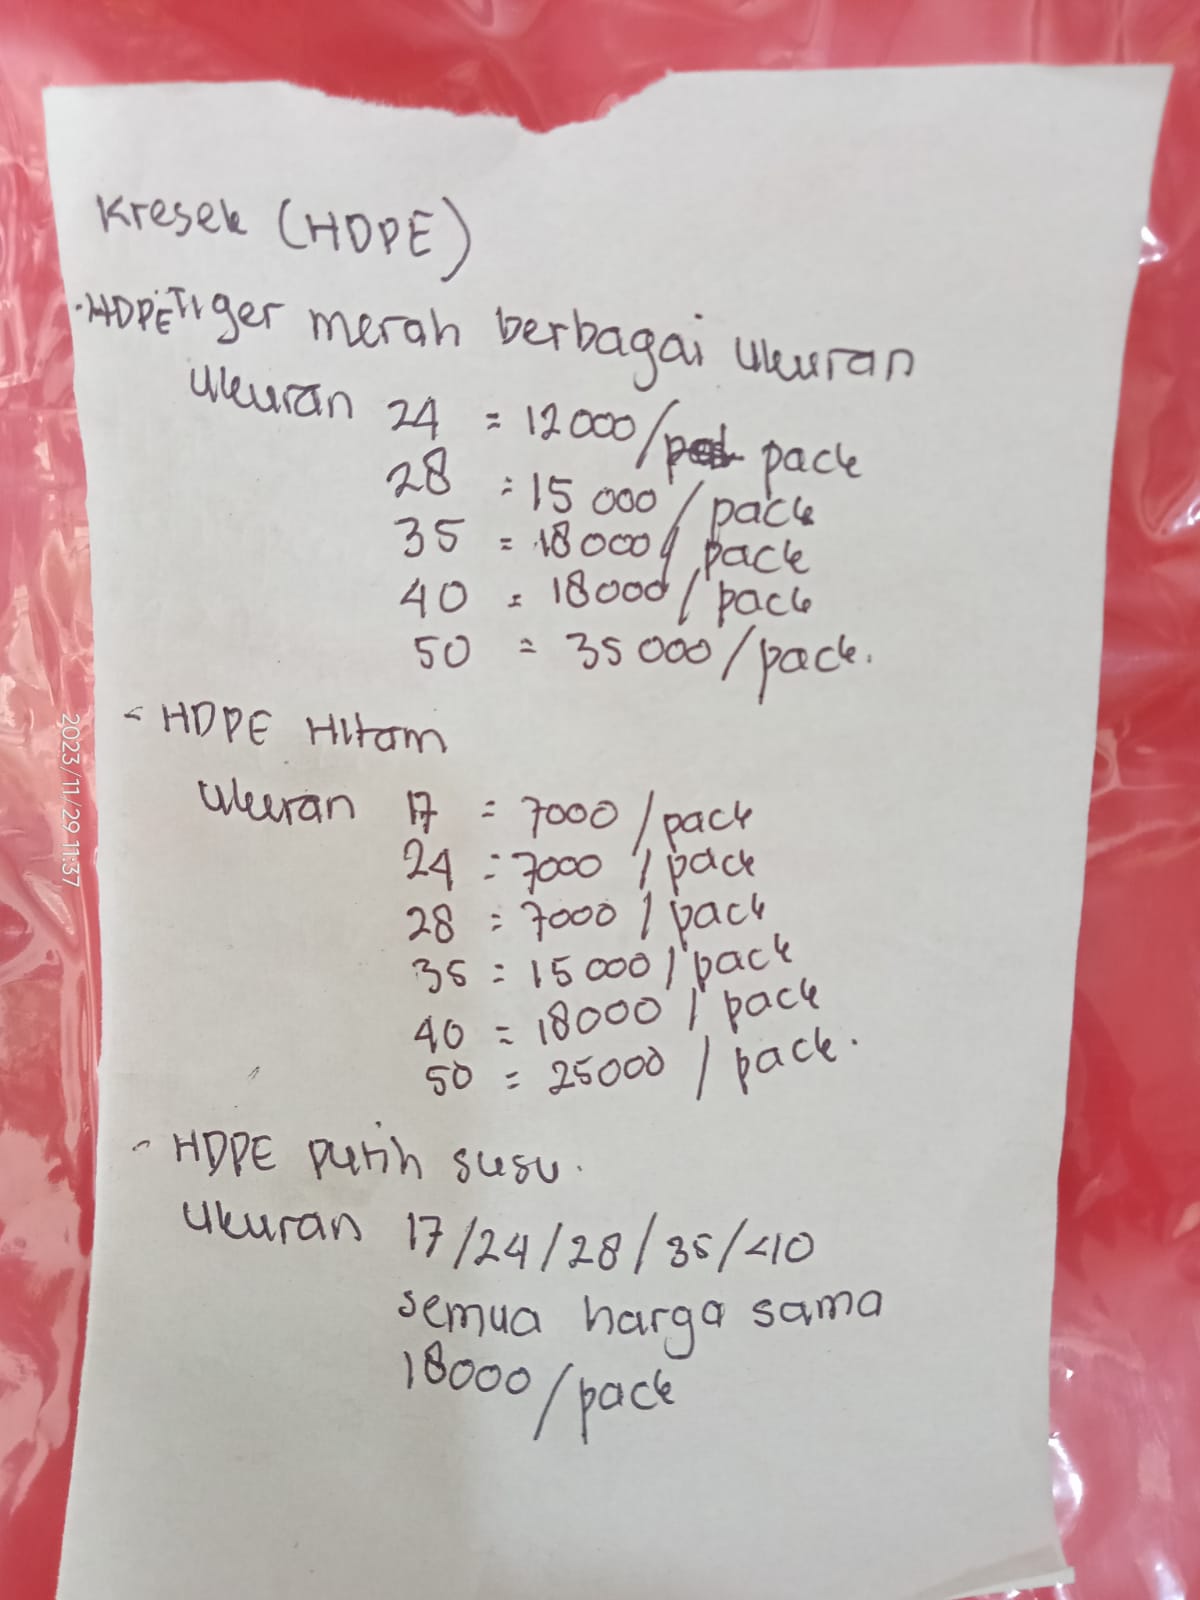 Kresek (HDPE)
- HDPE Tiger merah berbagai ukuran
Ukuran 24 = 12000/ pack
28 = 15 000 / pack
35 = 18000 / pack
40 = 18000 / pack
50 = 35 000 / pack.
- HDPE Hitam
Ukuran 17 = 7000 / pack
24 = 7000 / pack
28 = 7000 / pack
35 = 15 000 / pack
40 = 18000 / pack
50 = 25000 / pack.
- HDPE putih susu.
Ukuran 17/24/28/35/40
semua harga sama
18000/pack
2023/11/29 11:37